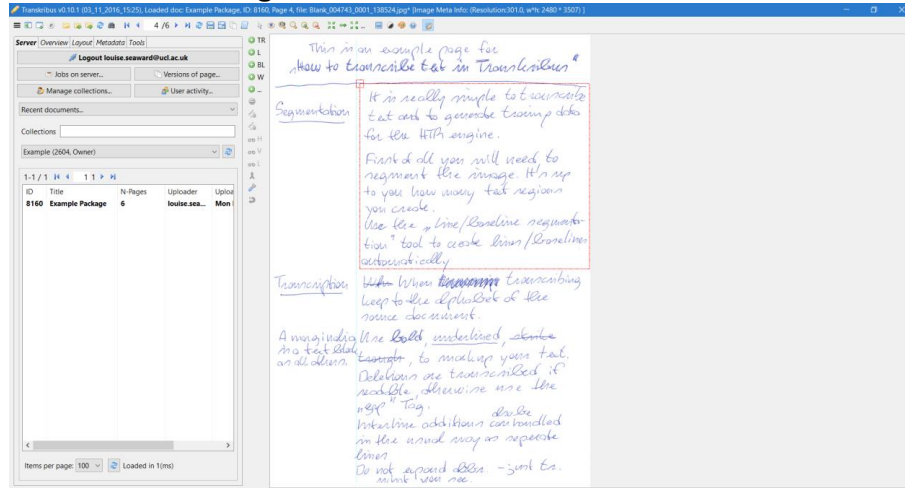 Transkribus v0.10.1 (03_11_2016_15:25), Loaded doc: Example Package, ID: 8160, Page 4, file: Blank_004743_0001_138524.jpg* [Image Meta Info: (Resolution:301.0, w*h: 2480 * 3507) ]
4 /6
Server Overview Layout Metadata Tools
Logout louise.seaward@ucl.ac.uk
Jobs on server... Versions of page...
Manage collections... User activity...
Recent documents...
Collections
Example (2604, Owner)
1-1 / 1 1 1
ID Title N-Pages Uploader Uploa
8160 Example Package 6 louise.sea... Mon
Items per page: 100 Loaded in 1(ms)
TR
L
BL
W
H
V
L
This is an example page for
"How to transcribe text in Transkribus"
Segmentation
It is really simple to transcribe
text and to generate training data
for the HTR engine.
First of all you will need, to
segment the image. It's up
to you how many text regions
you create.
Use the "Line/baseline segmenta-
tion" tool to create lines/baselines
automatically
Transcription
When When transcribing
keep to the alphabet of the
source document.
A marginalia
is a text block
as all others.
Use bold, underlined,
through, to markup your text.
Deletions are transcribed if
readable, otherwise use the
"gap" Tag.
also be
Interline additions can handled
in the usual way as seperate
lines
Do not expand abbr. - just tr.
what you see.